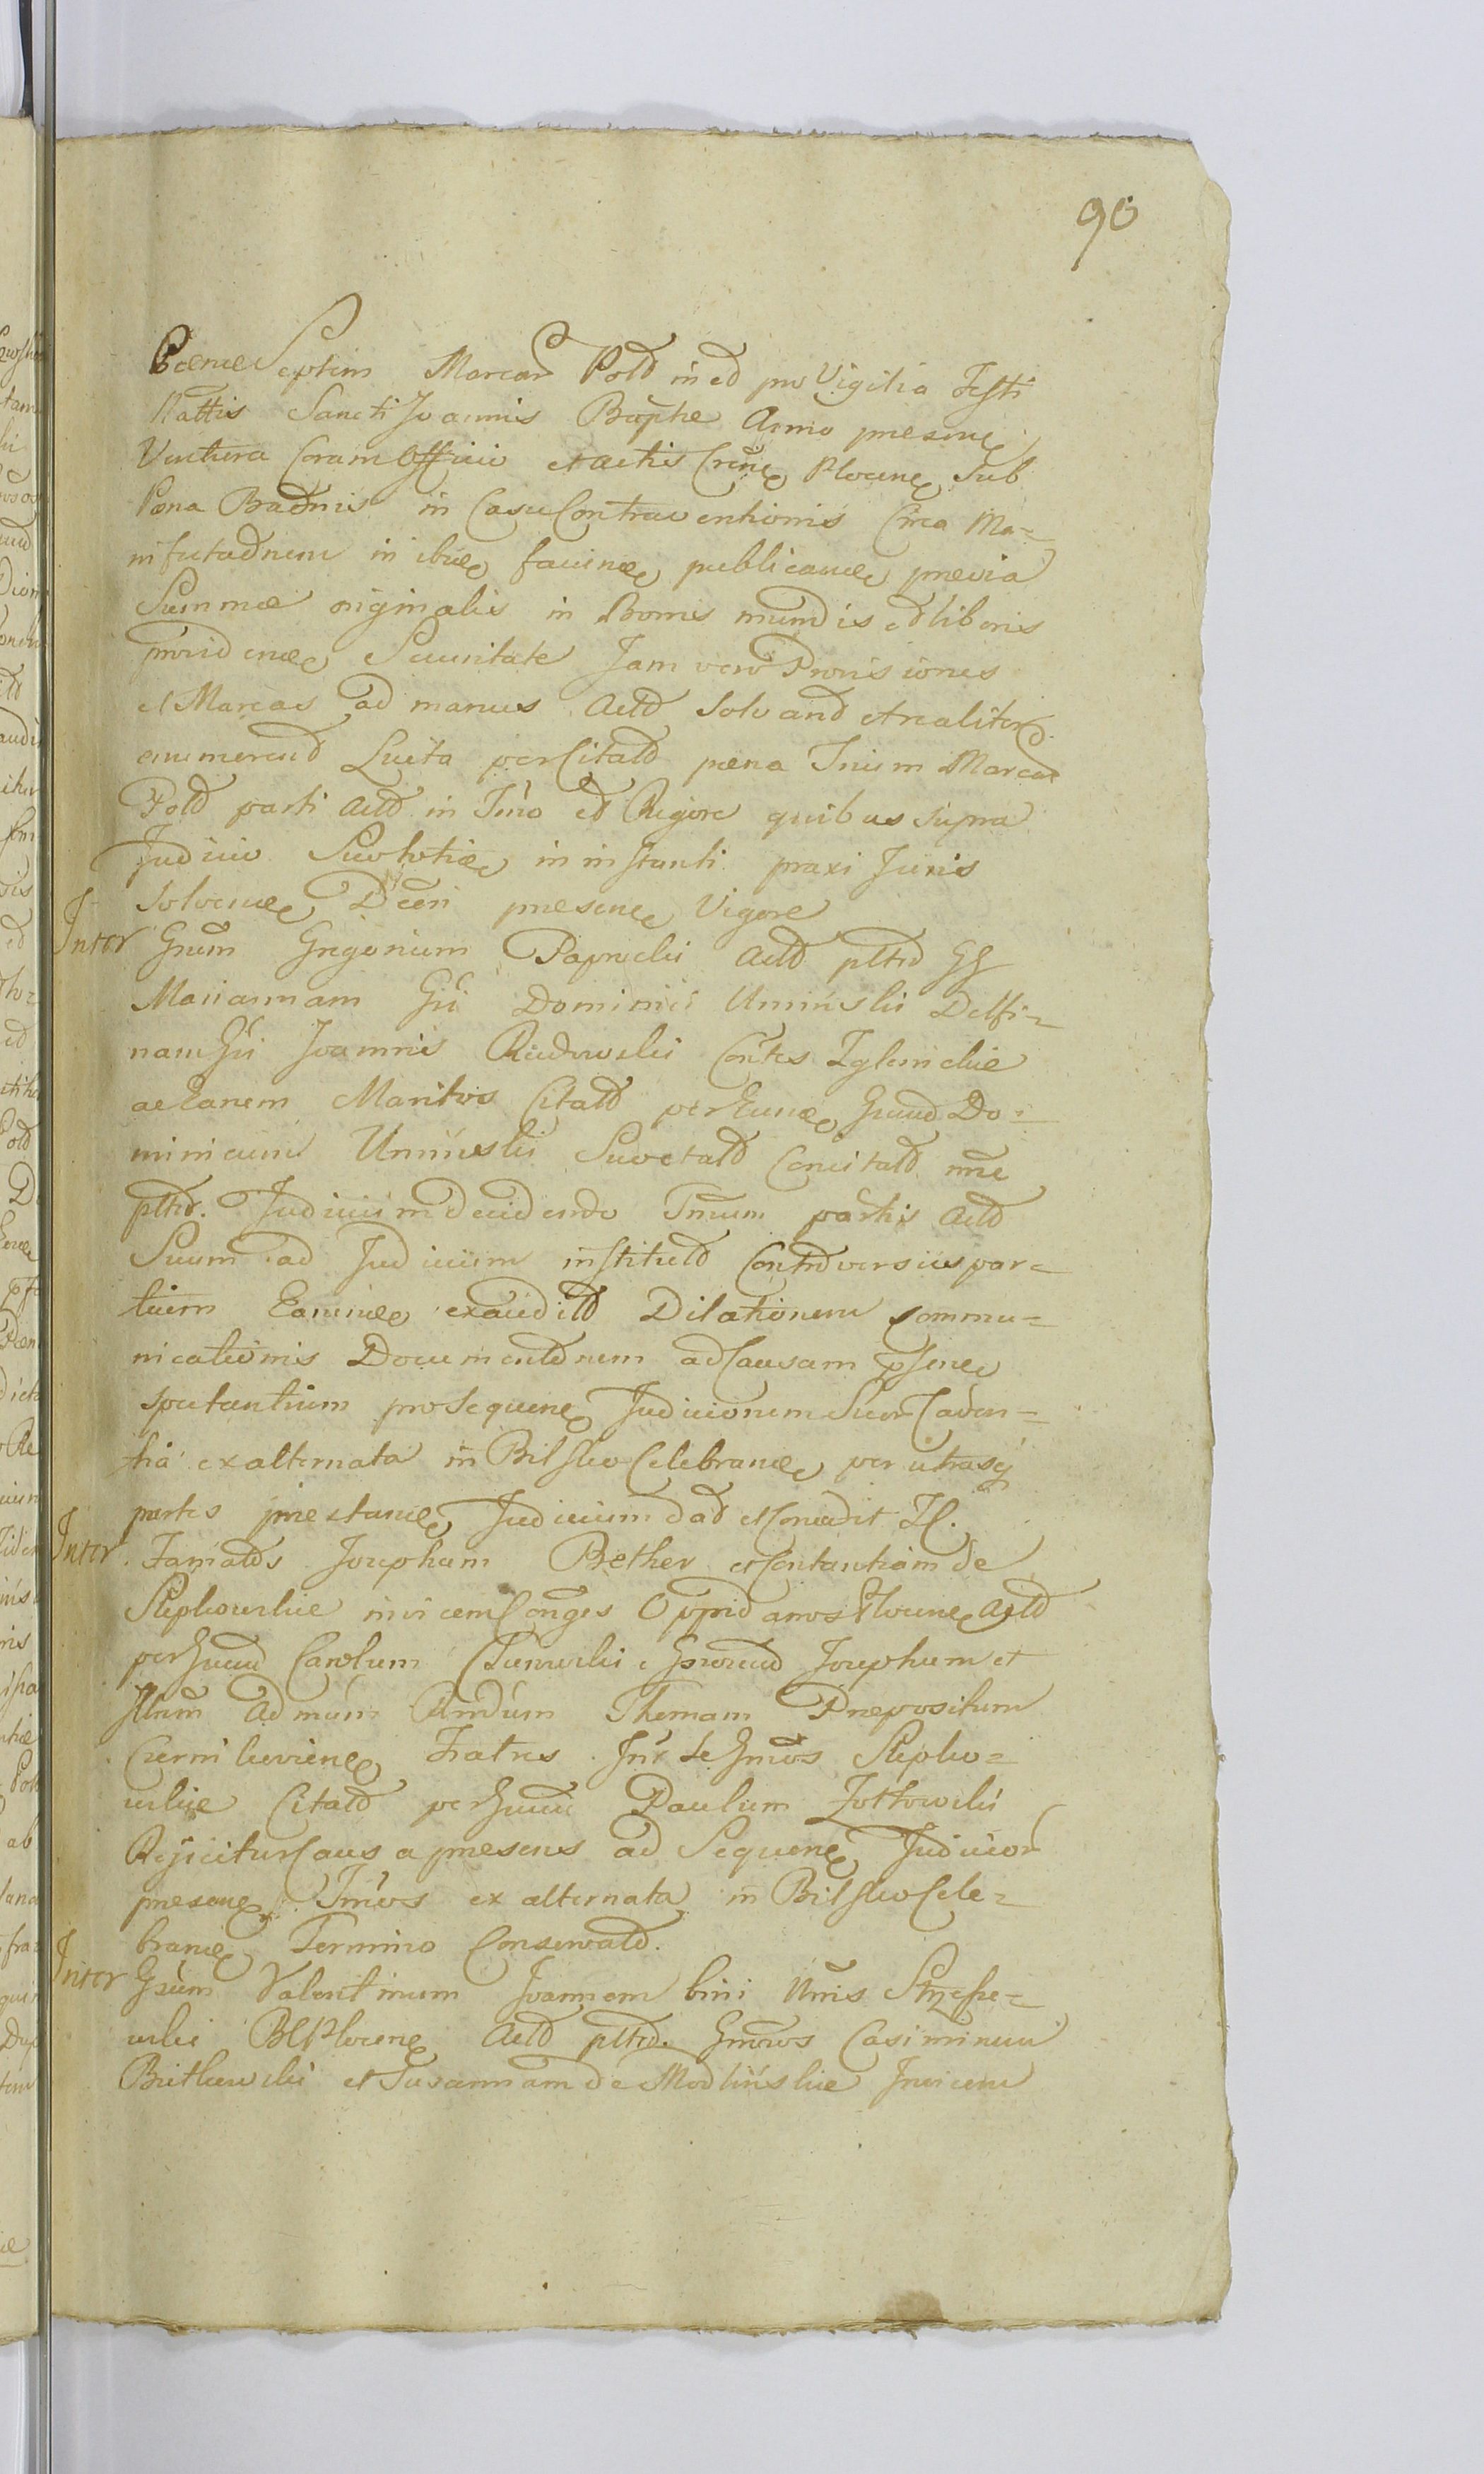 90
Poenae Septem Marcar Pold in ed pro Vigilia Festi
Nattis Sancti Joannis Bapthe Anno presene
Ventura Coram Officio et actis Crene Plocene Sub
Pena Badnis in Casu Contraventionis Circa Ma=
nifestadnem in ibne faciene publicanae previa
Summae originalis in Bonis mundis ed liberis
providene Securitate Jam vero Provisiones
et Marcas ad manus Actd Solvand et realiter
enumerand Lucta per Citatd paena Trium Marcar
Pold parti Actd in Tmo ed Rigore quibus supra
Judicio Succubtiae in instanti praxi Juris
Solvenae Decri presene Vigore
Inter Grum Gregorium Paprocki Actd pltrd GG
Mariannam Gsi Dominici Uminski Delfi=
nam Gsi Joannis Rudowski Contes Iglinskie
ac Eanem Maritos Citatd per Eunde Grund Do=
minicum Uminski Succtatd Concitatd nne
pltrd. Judicium decidendo Tnum partis Actd
Suum ad Judicium institutd Controversiis par=
tium Earune exauditd Dilationem commu=
nicationis Documentdnem ad Causam psene
spectantium pro Sequene Judiciorum Suor Caden=
tia ex alternata in Bilsko Celebranae per utrasq
partes praestanae Judicium dad et Concedit II.
Inter Famatds Josephum Bether et Constantiam de
Slepkowskie invicem Conges Oppidanos Plocene Actd
per Grund Carolum Generosund Josephum et
Illrm Admum Rmdum Thomam Praepositum
Fratres Inr Se Gnros Slepko=
wskie Citatd per Grund Paulum Zottowski
Rejicitur Causa presens ad Sequene Judicior
presene Tmos ex alternata in Bilsko Cele=
brane Termino Conservatd.
Inter Grum Valentinum Joannem bini Nmis
wski Plocene Actd pltrd. Gnrosos Casimirum
et Susannam de Modlinskie Invicem